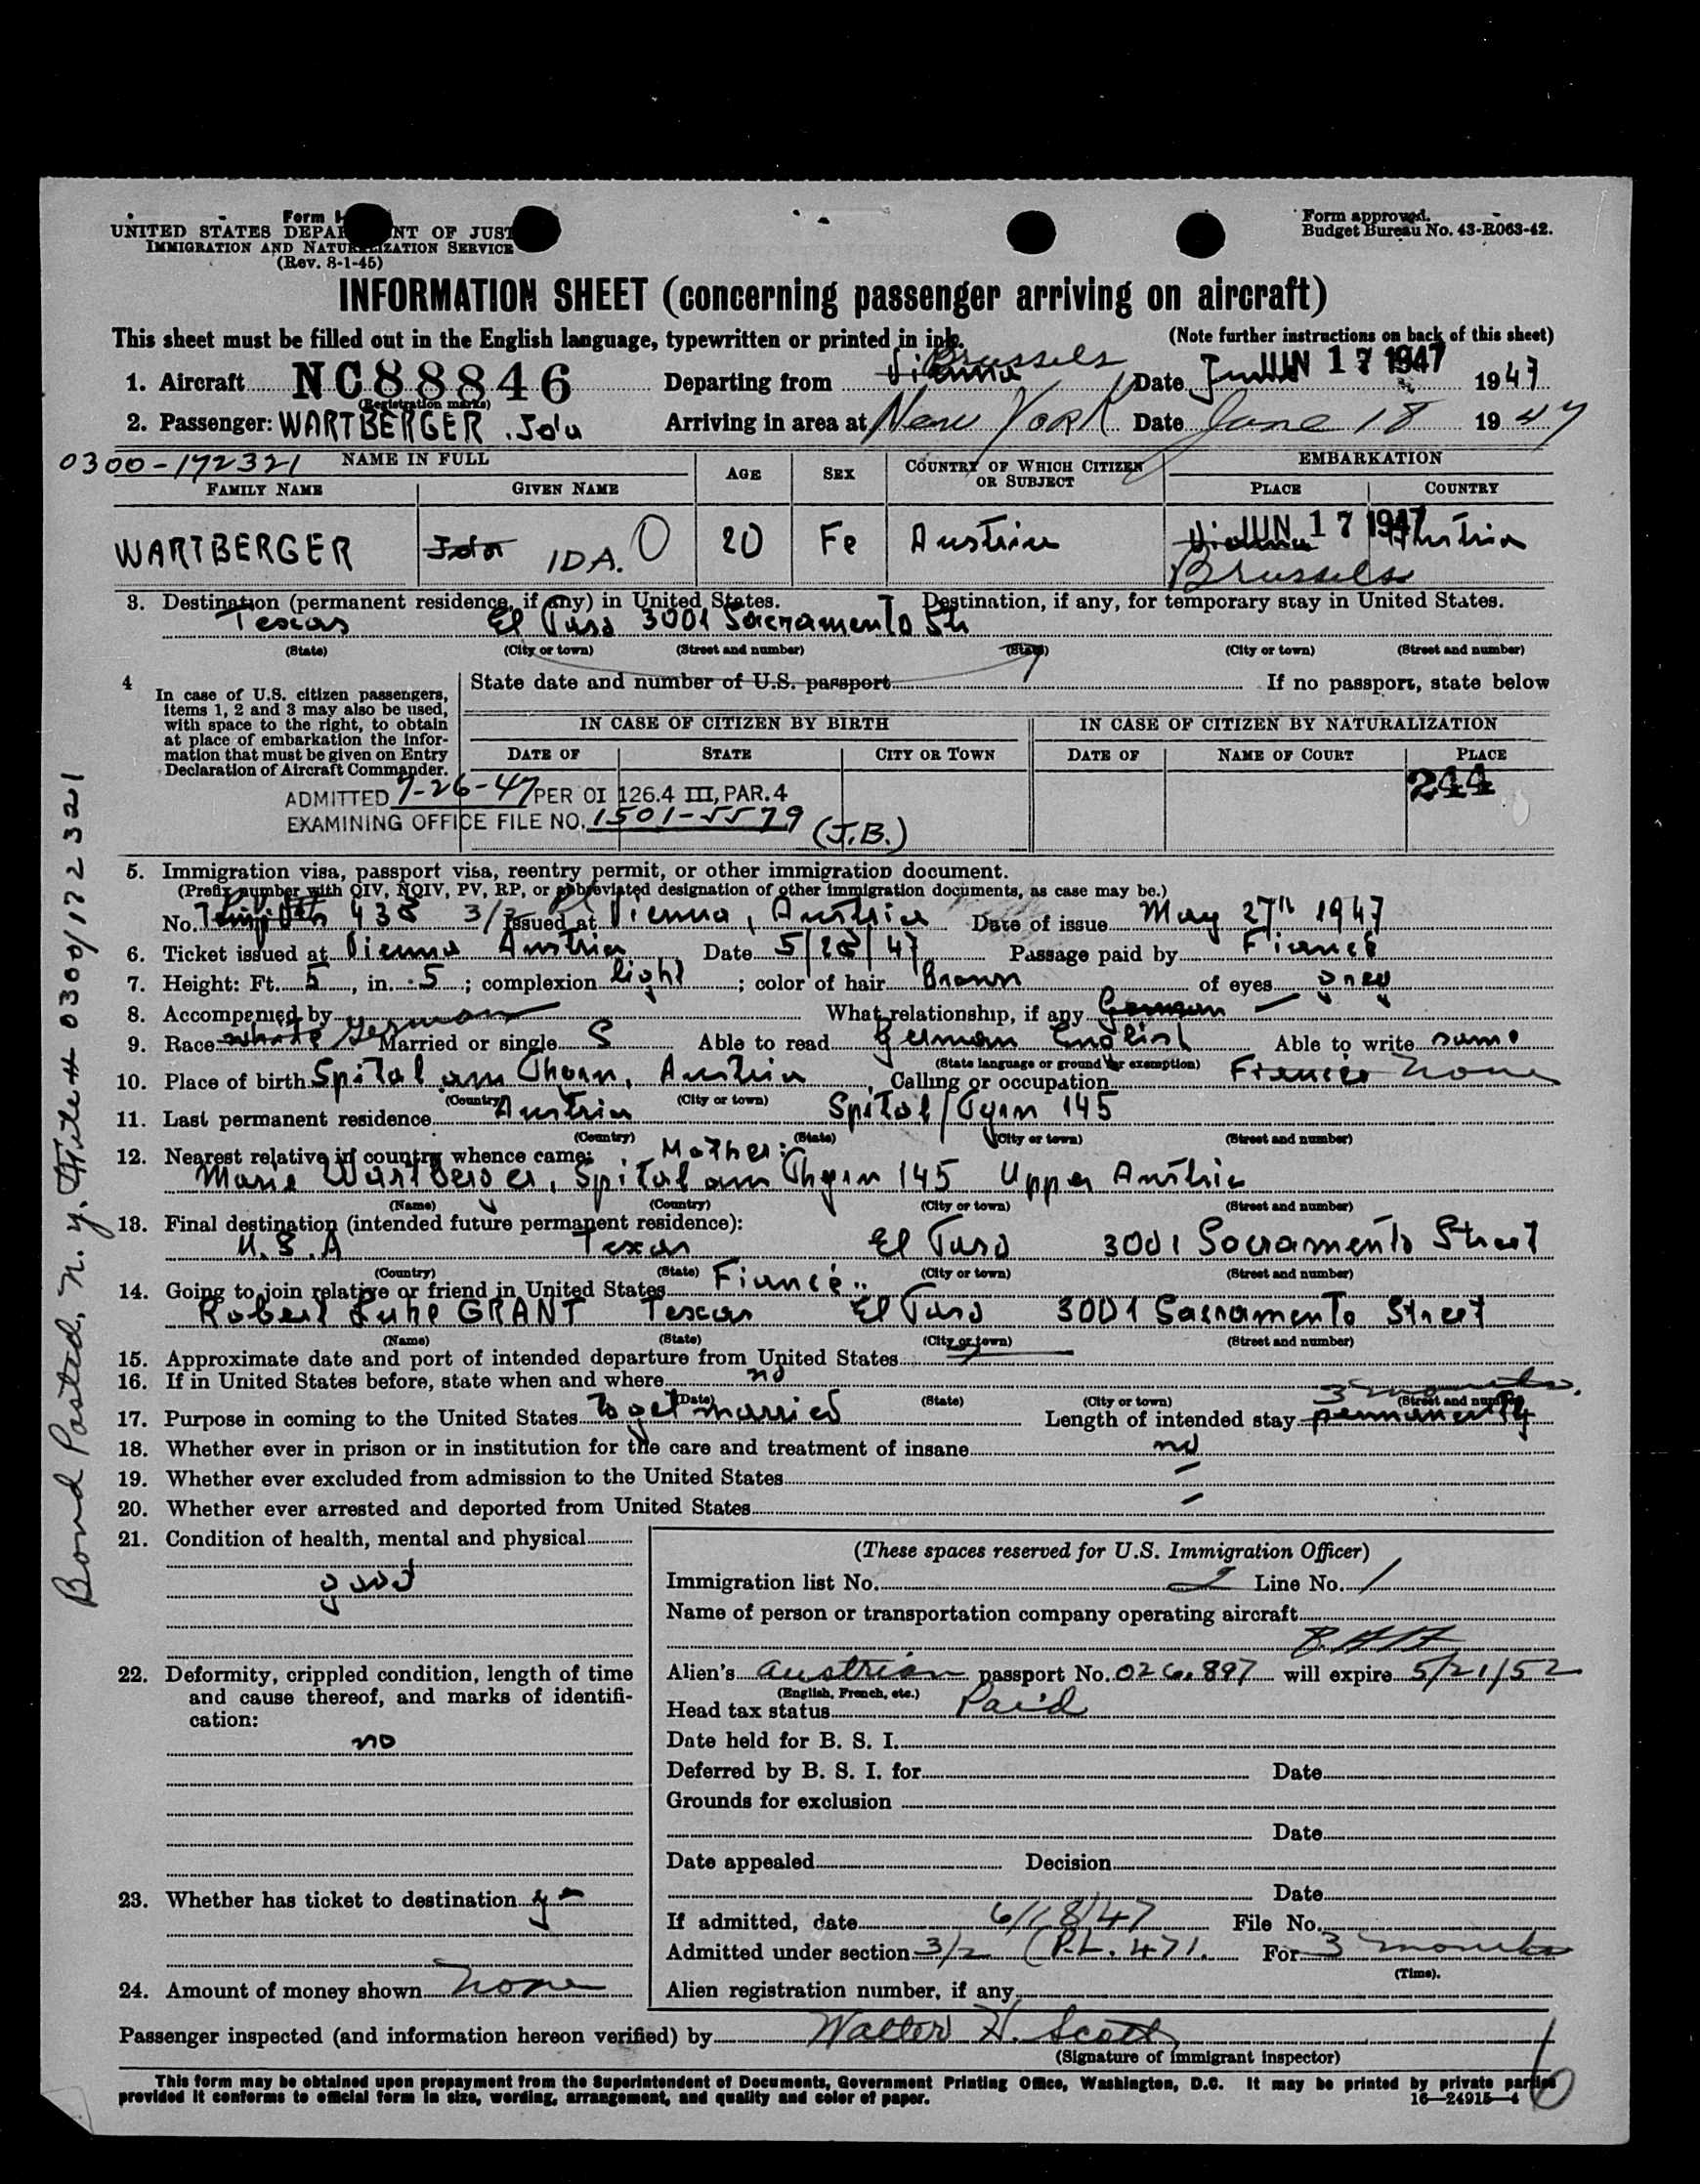 Form
UNITED STATES DEPARTMENT OF JUSTICE
IMMIGRATION AND NATURALIZATION SERVICE
(Rev. 8-1-45)
Form approved.
Budget Bureau No. 43-R063-42.
INFORMATION SHEET (concerning passenger arriving on aircraft)
This sheet must be filled out in the English language, typewritten or printed in ink.
(Note further instructions on back of this sheet)
1. Aircraft NC88846 Departing from Vienna Brussels Date June JUN 17 1947 1947
(Registration marks)
2. Passenger: WARTBERGER Ida Arriving in area at New York Date June 18 1947
0300-172321 NAME IN FULL AGE SEX COUNTRY OF WHICH CITIZEN OR SUBJECT EMBARKATION
FAMILY NAME GIVEN NAME PLACE COUNTRY
WARTBERGER Ida IDA. 20 Fe Austria Vienna JUN 17 1947 Austria
Brussels
3. Destination (permanent residence, if any) in United States. Destination, if any, for temporary stay in United States.
Texas El Paso 3001 Sacramento Str
(State) (City or town) (Street and number) (State) (City or town) (Street and number)
4 In case of U.S. citizen passengers, items 1, 2 and 3 may also be used, with space to the right, to obtain at place of embarkation the information that must be given on Entry Declaration of Aircraft Commander.
State date and number of U.S. passport If no passport, state below
IN CASE OF CITIZEN BY BIRTH IN CASE OF CITIZEN BY NATURALIZATION
DATE OF STATE CITY OR TOWN DATE OF NAME OF COURT PLACE
244
ADMITTED 7-26-47 PER OI 126.4 III, PAR. 4
EXAMINING OFFICE FILE NO. 1501-5579 (J.B.)
5. Immigration visa, passport visa, reentry permit, or other immigration document.
(Prefix number with QIV, NQIV, PV, RP, or abbreviated designation of other immigration documents, as case may be.)
No. 438 3/2 Issued at Vienna, Austria Date of issue May 27th 1947
6. Ticket issued at Vienna Austria Date 5/28/47 Passage paid by Fiancé
7. Height: Ft. 5, in. 5; complexion light; color of hair Brown of eyes grey
8. Accompanied by What relationship, if any German
9. Race white German Married or single S Able to read German English Able to write same
(State language or ground for exemption)
10. Place of birth Spital am Phyrn, Austria, Calling or occupation none
(Country) (City or town)
11. Last permanent residence Austria Spital/Pyrn 145
(Country) (State) (City or town) (Street and number)
12. Nearest relative in country whence came: Mother:
Marie Wartberger, Spital am Phyrn 145 Upper Austria
(Name) (Country) (City or town) (Street and number)
13. Final destination (intended future permanent residence):
U.S.A Texas El Paso 3001 Sacramento Street
(Country) (State) (City or town) (Street and number)
14. Going to join relative or friend in United States Fiancé:
Robert Luke GRANT Texas El Paso 3001 Sacramento Street
(Name) (State) (City or town) (Street and number)
15. Approximate date and port of intended departure from United States
16. If in United States before, state when and where no
(Date) (State) (City or town) (Street and number)
3 months.
17. Purpose in coming to the United States To get married Length of intended stay permanently
18. Whether ever in prison or in institution for the care and treatment of insane no
19. Whether ever excluded from admission to the United States -
20. Whether ever arrested and deported from United States -
21. Condition of health, mental and physical
good
22. Deformity, crippled condition, length of time and cause thereof, and marks of identification:
no
23. Whether has ticket to destination
24. Amount of money shown none
(These spaces reserved for U.S. Immigration Officer)
Immigration list No. 2 Line No. 1
Name of person or transportation company operating aircraft
Alien's Austrian passport No. 026.897 will expire 5/21/52
(English, French, etc.)
Head tax status Paid
Date held for B. S. I.
Deferred by B. S. I. for Date
Grounds for exclusion
Date
Date appealed Decision
Date
If admitted, date 6/18/47 File No.
Admitted under section 3/2 (P.L. 471. For 3 months
(Time).
Alien registration number, if any
Passenger inspected (and information hereon verified) by Walter H. Scott
(Signature of immigrant inspector)
This form may be obtained upon prepayment from the Superintendent of Documents, Government Printing Office, Washington, D.C. It may be printed by private parties
provided it conforms to official form in size, wording, arrangement, and quality and color of paper.
16—24915-4
Bond Posted, N.Y. File # 0300/172321